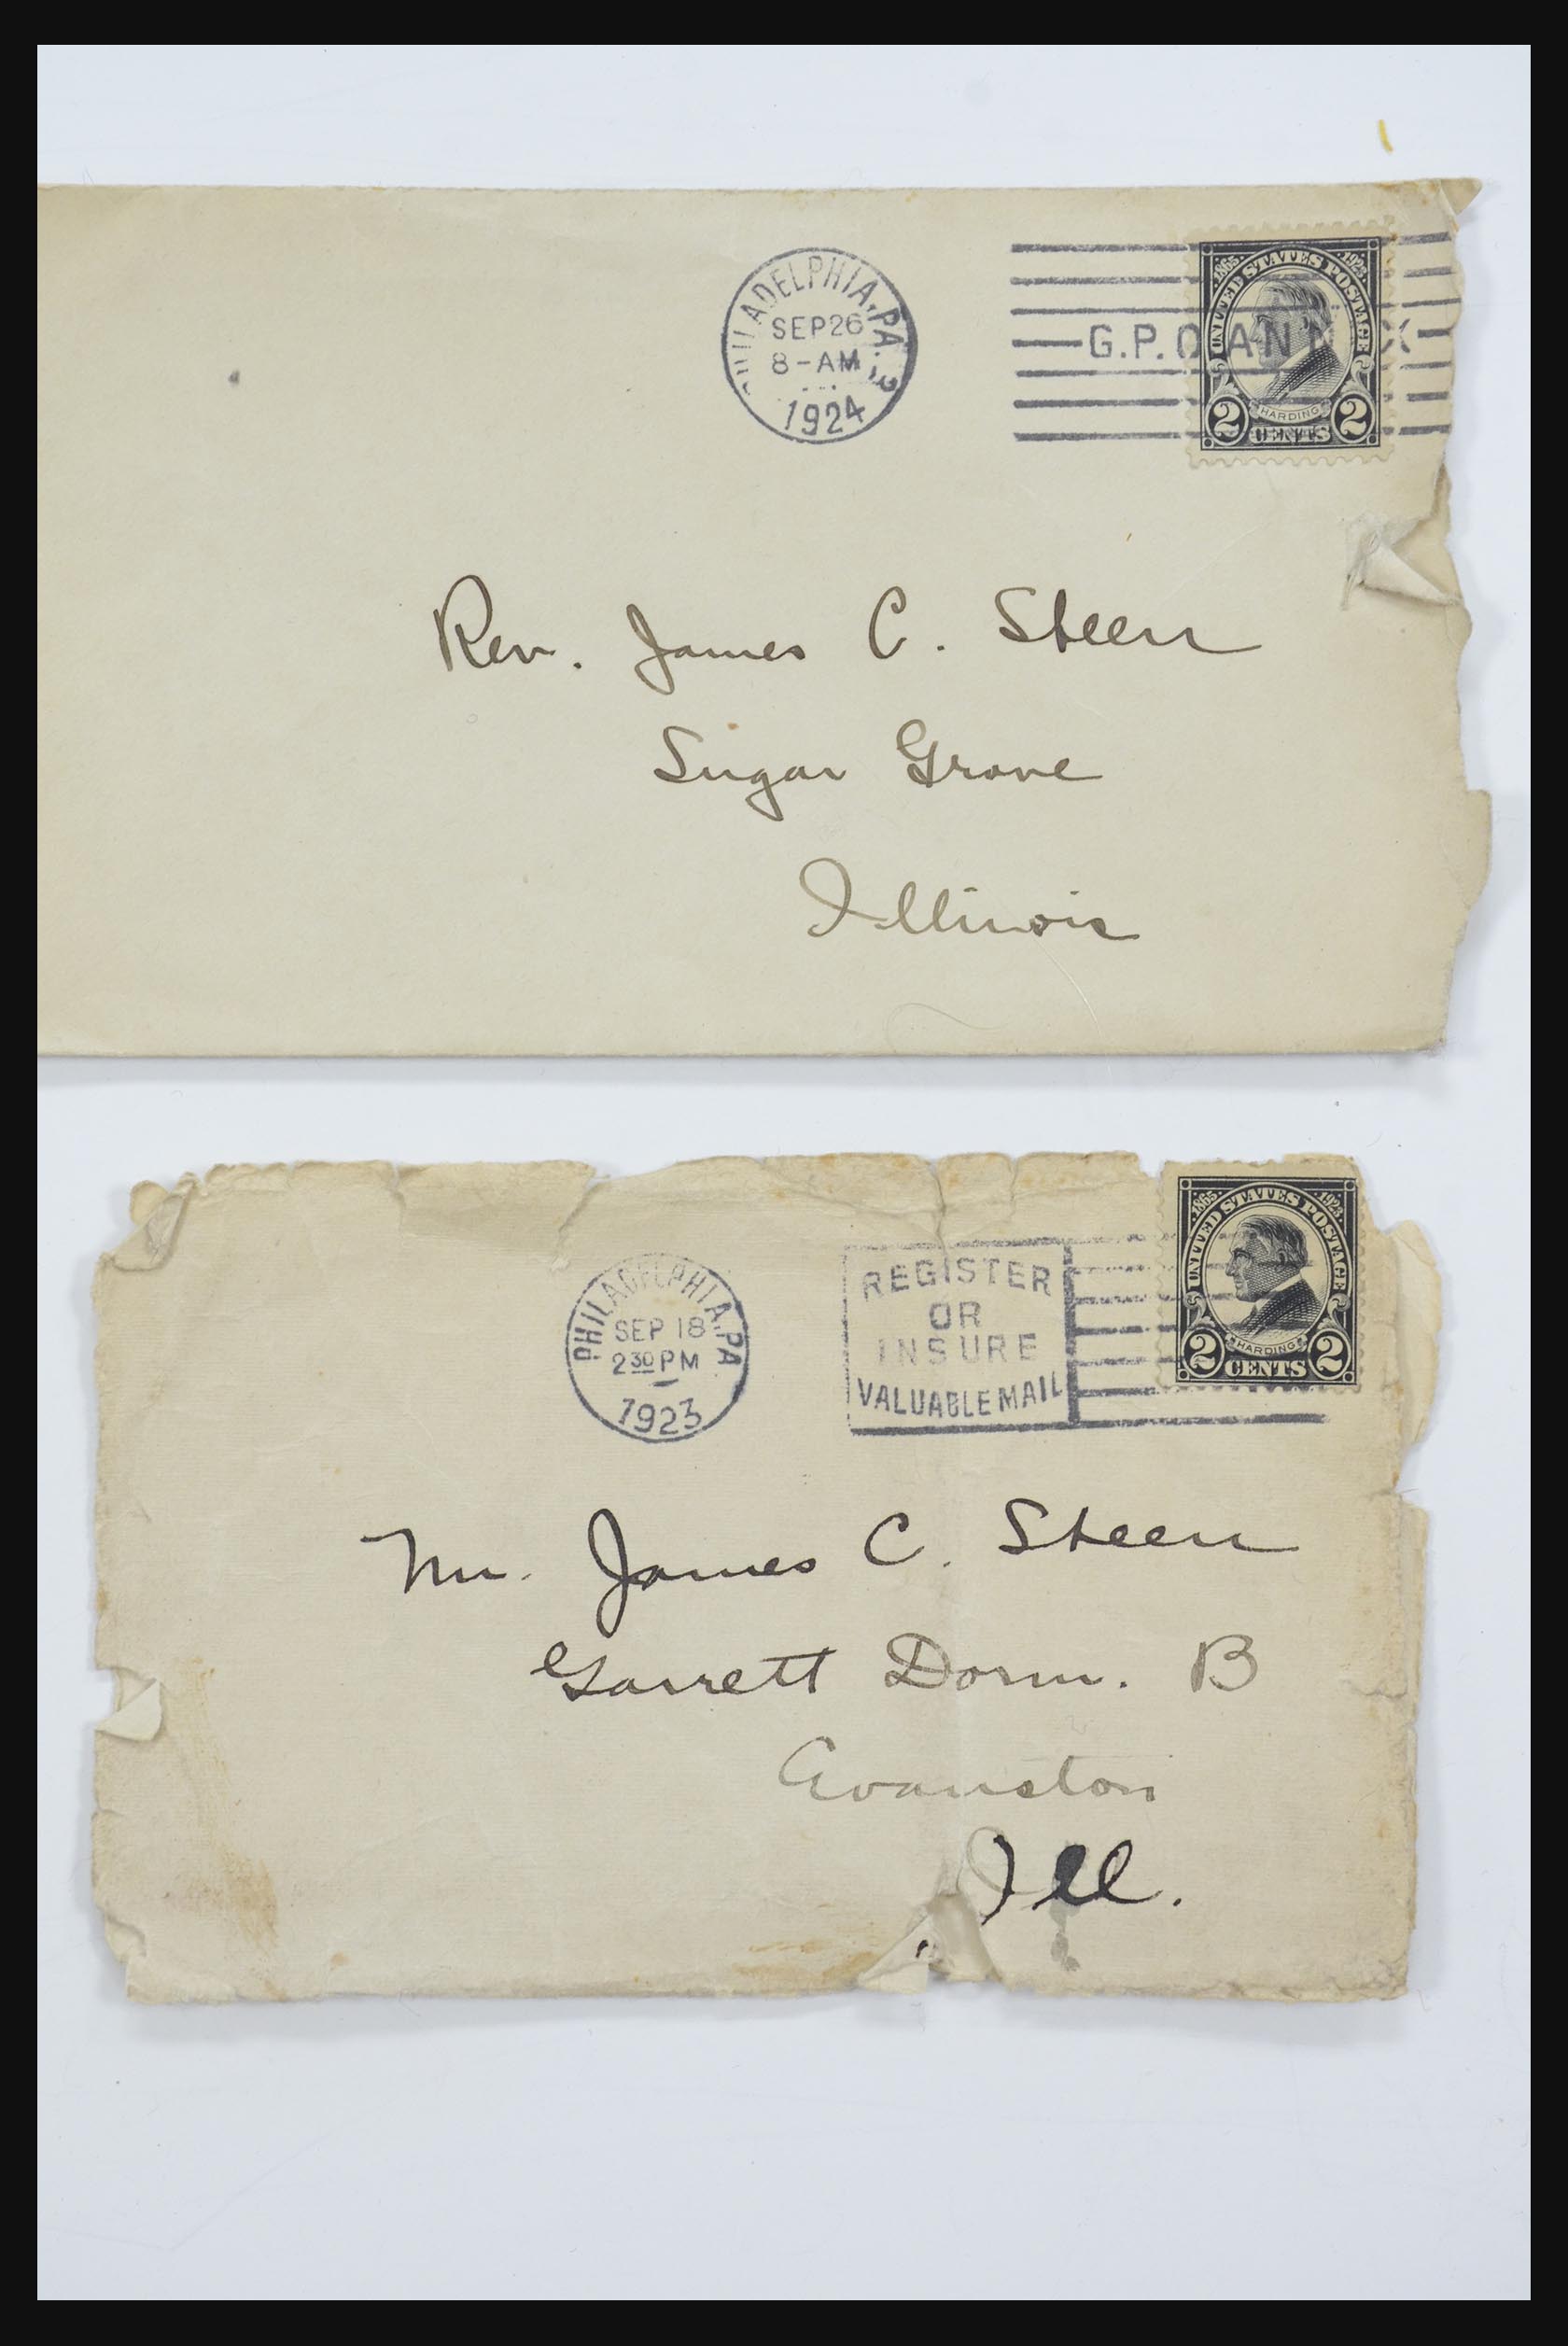 PHILADELPHIA, PA.
SEP 26
8-AM
1924
G.P.O. ANNEX
1865 1923
UNITED STATES POSTAGE
HARDING
2 CENTS 2
Rev. James C. Steen
Sugar Grove
Illinois
PHILADELPHIA, PA
SEP 18
2 30 PM
1923
REGISTER
OR
INSURE
VALUABLE MAIL
1865 1923
UNITED STATES POSTAGE
HARDING
2 CENTS 2
Mr. James C. Steen
Garrett Dorm. B
Evanston
Ill.